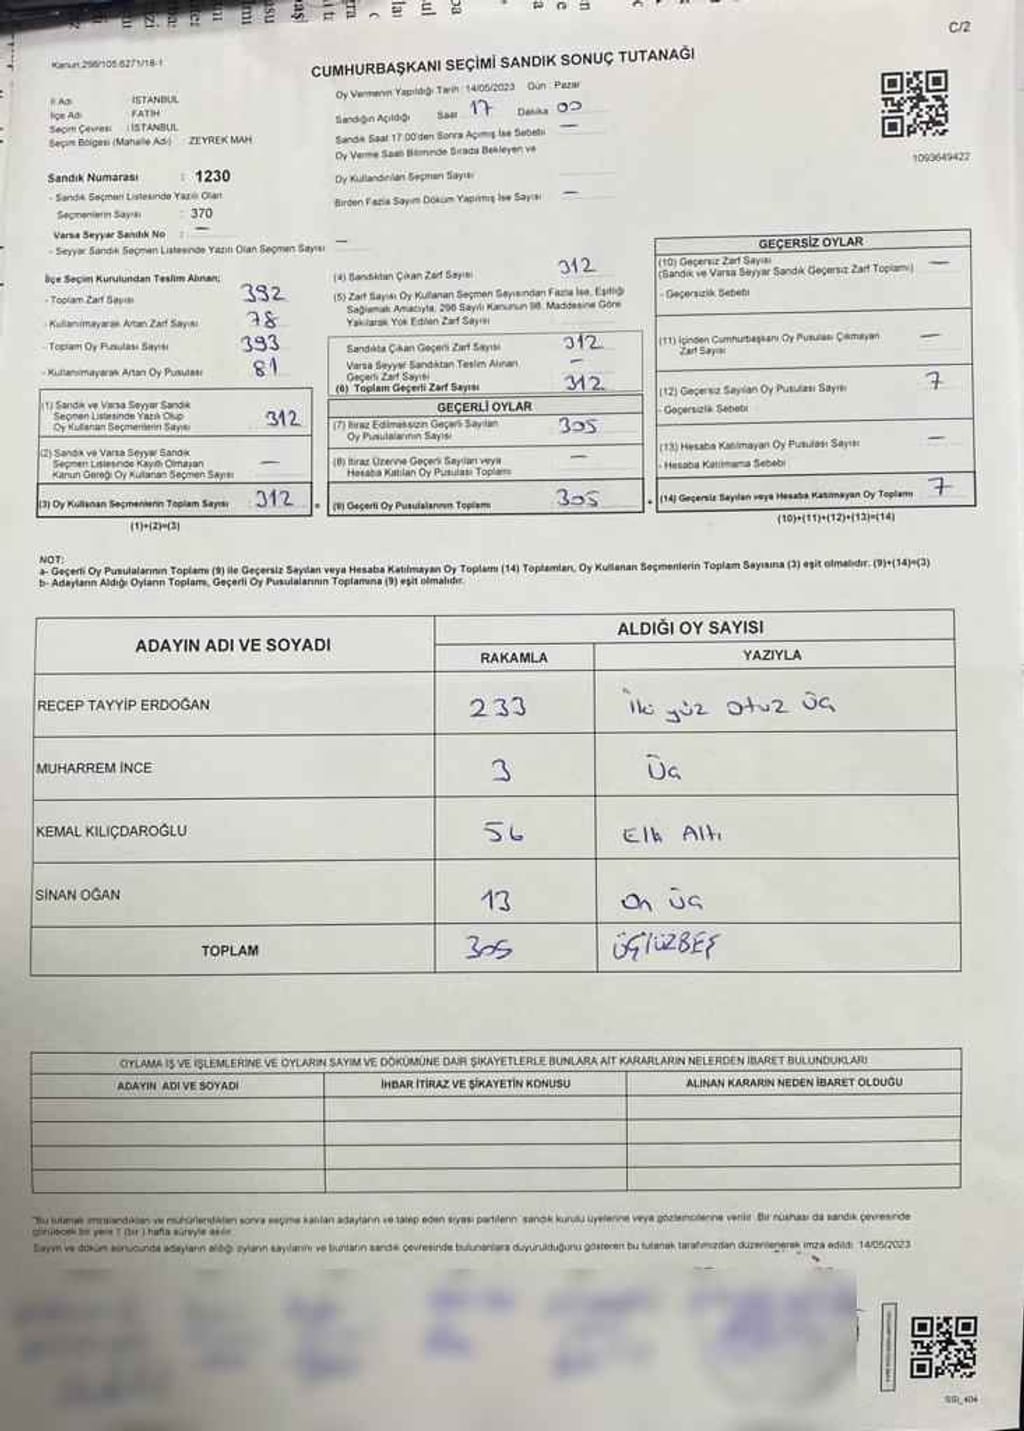 C/2
Kanun:298/105.6271/18-1
CUMHURBAŞKANI SEÇİMİ SANDIK SONUÇ TUTANAĞI
İl Adı : İSTANBUL
İlçe Adı : FATİH
Seçim Çevresi : İSTANBUL
Seçim Bölgesi (Mahalle Adı) : ZEYREK MAH
Oy Vermenin Yapıldığı Tarih : 14/05/2023 Gün : Pazar
Sandığın Açıldığı Saat 17 Dakika 00
Sandık Saat 17:00'den Sonra Açımış İse Sebebi —
Oy Verme Saati Bitiminde Sırada Bekleyen ve
Oy Kullandırılan Seçmen Sayısı
Birden Fazla Sayım Döküm Yapılmış İse Sayısı —
1093649422
Sandık Numarası : 1230
- Sandık Seçmen Listesinde Yazılı Olan
Seçmenlerin Sayısı : 370
Varsa Seyyar Sandık No : —
- Seyyar Sandık Seçmen Listesinde Yazılı Olan Seçmen Sayısı —
İlçe Seçim Kurulundan Teslim Alınan;
- Toplam Zarf Sayısı 392
- Kullanılmayarak Artan Zarf Sayısı 78
- Toplam Oy Pusulası Sayısı 393
- Kullanılmayarak Artan Oy Pusulası 81
(1) Sandık ve Varsa Seyyar Sandık
Seçmen Listesinde Yazılı Olup
Oy Kullanan Seçmenlerin Sayısı 312
(2) Sandık ve Varsa Seyyar Sandık
Seçmen Listesinde Kayıtlı Olmayan
Kanun Gereği Oy Kullanan Seçmen Sayısı —
(3) Oy Kullanan Seçmenlerin Toplam Sayısı 312
(1)+(2)=(3)
(4) Sandıktan Çıkan Zarf Sayısı 312
(5) Zarf Sayısı Oy Kullanan Seçmen Sayısından Fazla İse, Eşitliği
Sağlamak Amacıyla, 298 Sayılı Kanunun 98. Maddesine Göre
Yakılarak Yok Edilen Zarf Sayısı
Sandıkta Çıkan Geçerli Zarf Sayısı 312
Varsa Seyyar Sandıktan Teslim Alınan
Geçerli Zarf Sayısı —
(6) Toplam Geçerli Zarf Sayısı 312
GEÇERLİ OYLAR
(7) İtiraz Edilmeksizin Geçerli Sayılan
Oy Pusulalarının Sayısı 305
(8) İtiraz Üzerine Geçerli Sayılan veya
Hesaba Katılan Oy Pusulası Toplamı —
= (9) Geçerli Oy Pusulalarının Toplamı 305
GEÇERSİZ OYLAR
(10) Geçersiz Zarf Sayısı —
(Sandık ve Varsa Seyyar Sandık Geçersiz Zarf Toplamı)
- Geçersizlik Sebebi
(11) İçinden Cumhurbaşkanı Oy Pusulası Çıkmayan
Zarf Sayısı —
(12) Geçersiz Sayılan Oy Pusulası Sayısı 7
- Geçersizlik Sebebi
(13) Hesaba Katılmayan Oy Pusulası Sayısı —
- Hesaba Katılmama Sebebi
+ (14) Geçersiz Sayılan veya Hesaba Katılmayan Oy Toplamı 7
(10)+(11)+(12)+(13)=(14)
NOT:
a- Geçerli Oy Pusulalarının Toplamı (9) ile Geçersiz Sayılan veya Hesaba Katılmayan Oy Toplamı (14) Toplamları, Oy Kullanan Seçmenlerin Toplam Sayısına (3) eşit olmalıdır. (9)+(14)=(3)
b- Adayların Aldığı Oyların Toplamı, Geçerli Oy Pusulalarının Toplamına (9) eşit olmalıdır.
ADAYIN ADI VE SOYADI
ALDIĞI OY SAYISI
RAKAMLA YAZIYLA
RECEP TAYYİP ERDOĞAN 233 İki yüz otuz üç
MUHARREM İNCE 3 Üç
KEMAL KILIÇDAROĞLU 56 Elli Altı
SİNAN OĞAN 13 on üç
TOPLAM 305 ÜÇYÜZBEŞ
OYLAMA İŞ VE İŞLEMLERİNE VE OYLARIN SAYIM VE DÖKÜMÜNE DAİR ŞİKAYETLERLE BUNLARA AİT KARARLARIN NELERDEN İBARET BULUNDUKLARI
ADAYIN ADI VE SOYADI İHBAR İTİRAZ VE ŞİKAYETİN KONUSU ALINAN KARARIN NEDEN İBARET OLDUĞU
"Bu tutanak imzalandıktan ve mühürlendikten sonra seçime katılan adayların ve talep eden siyasi partilerin sandık kurulu üyelerine veya gözlemcilerine verilir. Bir nüshası da sandık çevresinde
görülecek bir yere 1 (bir) hafta süreyle asılır.
Sayım ve döküm sonucunda adayların aldığı oyların sayılarını ve bunların sandık çevresinde bulunanlara duyurulduğunu gösteren bu tutanak tarafımızdan düzenlenerek imza edildi. 14/05/2023